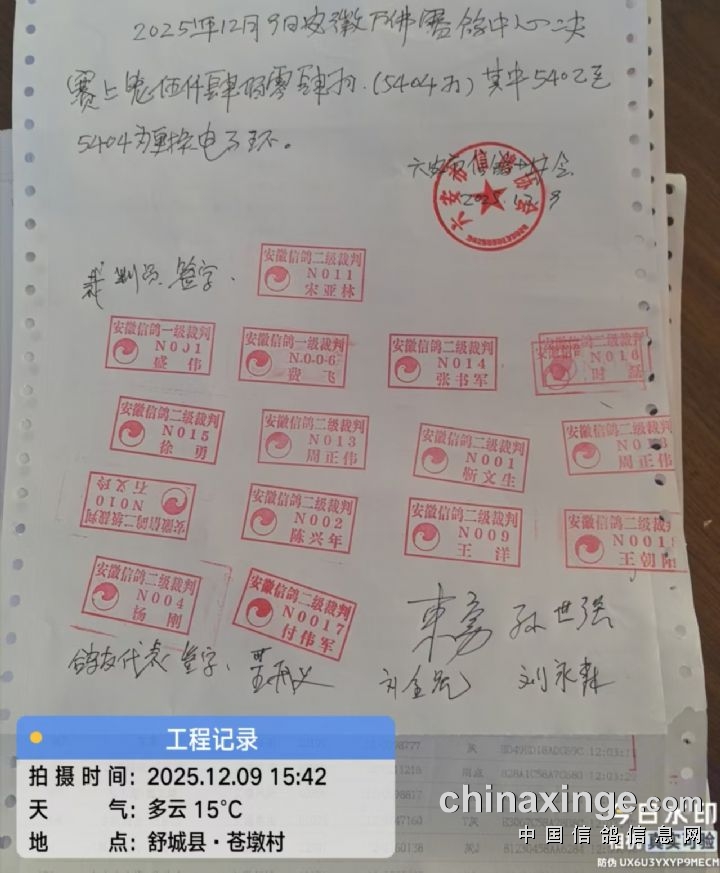 2025年12月9日安徽万佛赛鸽中心二关
赛上笼伍仟肆佰零肆羽.(5404羽)其中5402至
5404为更换电子环。
六安市信鸽协会
2025.12.9
裁判员签字.
安徽信鸽二级裁判
N011
宋亚林
安徽信鸽一级裁判
N001
盛伟
安徽信鸽一级裁判
N006
费飞
安徽信鸽二级裁判
N014
张书军
二级裁判
N016
时磊
安徽信鸽二级裁判
N015
徐勇
安徽信鸽二级裁判
N013
周正伟
安徽信鸽二级裁判
N001
靳文生
安徽信鸽二级裁判
周正伟
安徽信鸽二级裁判
N010
石义玲
安徽信鸽二级裁判
N002
陈兴年
安徽信鸽二级裁判
N009
王洋
安徽信鸽二级裁判
N0018
王朝阳
安徽信鸽二级裁判
N004
杨刚
安徽信鸽二级裁判
N0017
付伟军
孙世强
鸽友代表签字.
刘金龙
刘永森
工程记录
拍摄时间: 2025.12.09 15:42
天气: 多云 15°C
地点: 舒城县·苍墩村
chinaxinge.com
中国信鸽信息网
今日水印
相机 真实时间
防伪 UX6U3YXYP9MECM